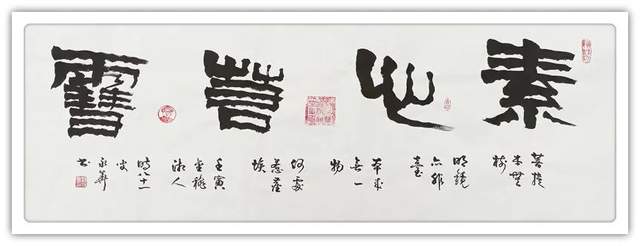 素心若雪
菩提
本無
樹
明鏡
亦非
臺
本來
無一
物
何處
惹塵
埃
壬寅
人
時八十一
叟
永華
書